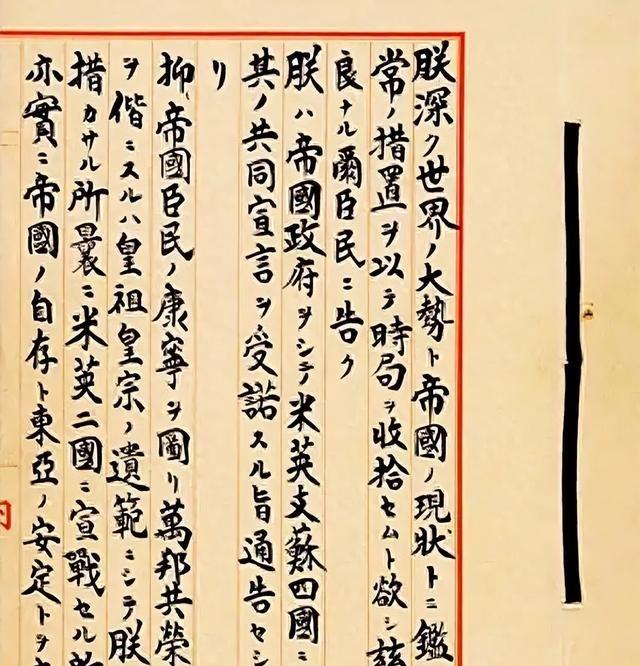 朕深ク世界ノ大勢ト帝國ノ現狀トニ鑑
常ノ措置ヲ以テ時局ヲ收拾セムト欲シ茲
良ナル爾臣民ニ告ク
朕ハ帝國政府ヲシテ米英支蘇四國ニ
其ノ共同宣言ヲ受諾スル旨通告セシ
リ
抑帝國臣民ノ康寧ヲ圖リ萬邦共榮
ヲ偕ニスルハ皇祖皇宗ノ遺範ニシテ朕
措カサル所曩ニ米英二國ニ宣戰セル所
亦實ニ帝國ノ自存ト東亞ノ安定トヲ
内